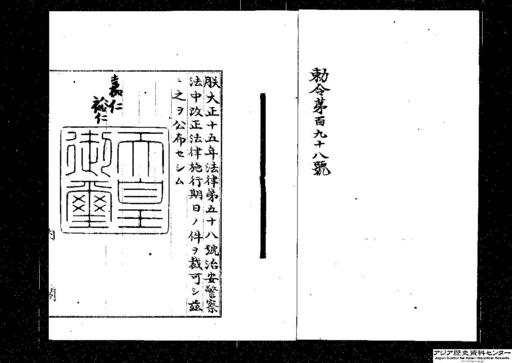 勅令第百九十八號
朕大正十五年法律第五十八號治安警察
法中改正法律施行期日ノ件ヲ裁可シ茲
ニ之ヲ公布セシム
嘉仁
裕仁
天皇
御璽
内閣
アジア歴史資料センター
Japan Center for Asian Historical Records